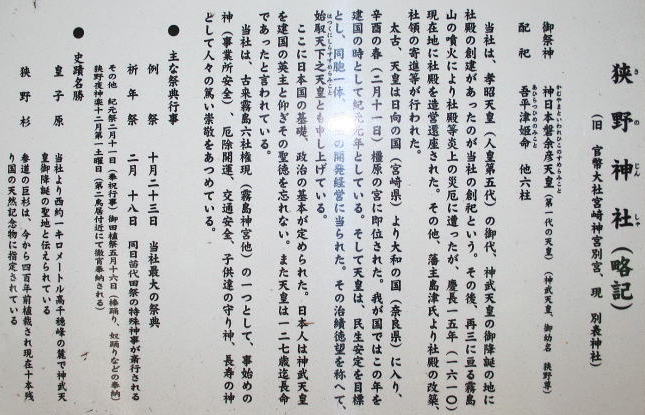 狭野神社（略記）
さのじんしゃ
（旧 官幣大社宮崎神宮別宮、現 別表神社）
御祭神 神日本磐余彦天皇（第一代の天皇）（神武天皇、御幼名 狭野尊）
かむやまといわれひこのすめらみこと
配祀 吾平津姫命 他六柱
あひらつひめのみこと
当社は、孝昭天皇（人皇第五代）の御代、神武天皇の御降誕の地に
社殿の創建があったのが当社の創祀という。その後、再三に亘る霧島
山の噴火により社殿等炎上の災厄に遭ったが、慶長一五年（一六一〇）
現在地に社殿を造営還座された。その他、藩主島津氏より社殿の改築
社領の寄進等が行われた。
太古、天皇は日向の国（宮崎県）より大和の国（奈良県）に入り、
辛酉の春（二月十一日）橿原の宮に即位された。我が国ではこの年を
建国の時として紀元元年としている。そして天皇は、民生安定を目標
とし、同胞一体、の開発経営に当られた。その治績徳望を称へて、
はつくにしらすすめらみこと
始馭天下之天皇とも申し上げている。
ここに日本国の基礎、政治の基本が定められた。日本人は神武天皇
を建国の英主と仰ぎその聖徳を忘れない。また天皇は一二七歳迄長命
であったと言われている。
当社は、古来霧島六社権現（霧島神宮他）の一つとして、事始めの
神（事業所安全）、厄除開運、交通安全、子供達の守り神、長寿の神
として人々の篤い崇敬をあつめている。
● 主な祭典行事
例祭 十月二十三日 当社最大の祭典
祈年祭 二月十八日 同日苗代田祭の特殊神事が斎行される
その他 紀元祭二月十一日（奉祝行事）御田植祭五月十六日（棒踊り、奴踊りなどの奉納）
狭野夜神楽十二月第一土曜日（第二鳥居付近にて徹宵奉納される）
● 史蹟名勝
皇子原 当社より西約一キロメートル高千穂峰の麓で神武天
皇御降誕の聖地と伝えられている
狭野杉 参道の巨杉は、今から四百年前植栽され現在十本残
り国の天然記念物に指定されている